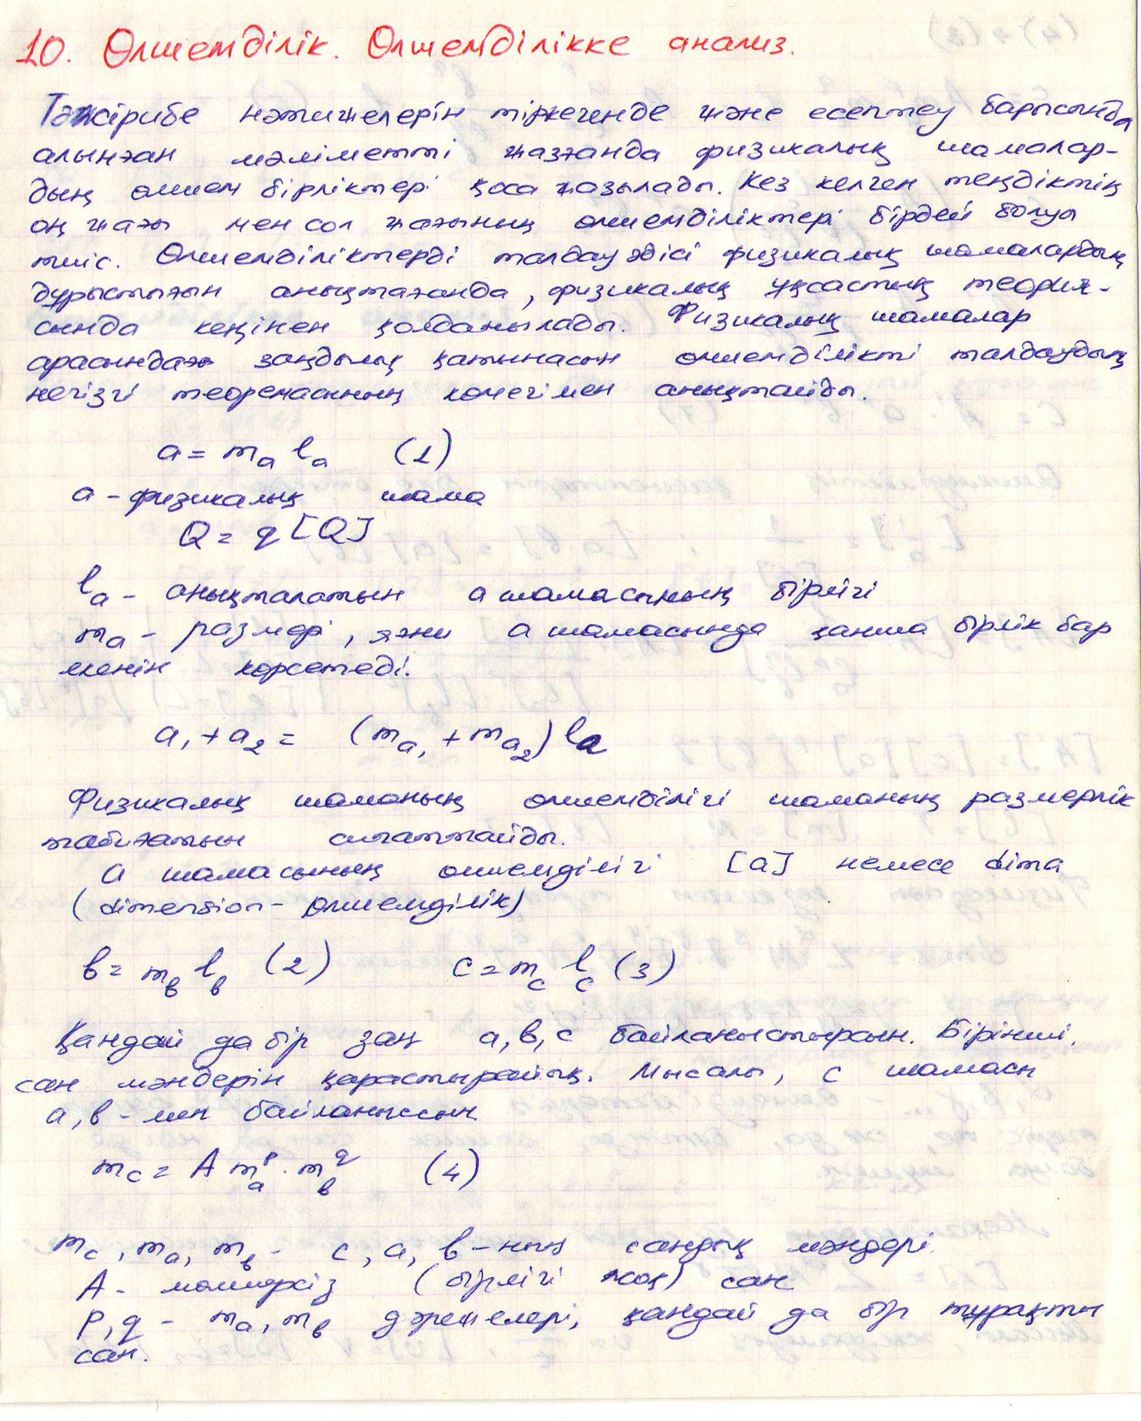 10. Өлшемділік. Өлшемділікке анализ.
Тәжірибе нәтижелерін тіркегенде және есептеу барысында
алынған мәліметті жазғанда физикалық шамалар-
дың өлшем бірліктері қоса жазылады. Кез келген теңдіктің
оң жағы мен сол жағының өлшемділіктері бірдей болуы
тиіс. Өлшемділіктерді талдау әдісі физикалық шамалардың
дұрыстығын анықтағанда, физикалық ұқсастық теория-
сында кеңінен қолданылады. Физикалық шамалар
арасындағы заңдылық қатынасын өлшемділікті талдаудың
негізгі теоремасының көмегімен анықтайды.
a = mₐ lₐ (1)
а - физикалық шама
Q = q [Q]
lₐ - анықталатын а шамасының бірлігі
mₐ - размері, яғни а шамасында қанша бірлік бар
екенін көрсетеді.
a₁ + a₂ = (m_{a₁} + m_{a₂}) lₐ
Физикалық шаманың өлшемділігі шаманың размерлік
табиғатын сипаттайды.
а шамасының өлшемділігі [a] немесе dim a
(dimension - өлшемділік)
в = m_в l_в (2) c = m_c l_c (3)
Қандай да бір заң а, в, с байланыстырсын. Бірінші,
сан мәндерін қарастырайық. Мысалы, с шамасы
а, в - мен байланыссын
m_c = A m_a^p · m_в^q (4)
m_c, m_a, m_в - с, а, в - ның сандық мәндері
А - мөлшерсіз (бірлігі жоқ) сан
p, q - m_a, m_в дәрежелері, қандай да бір тұрақты
сан.